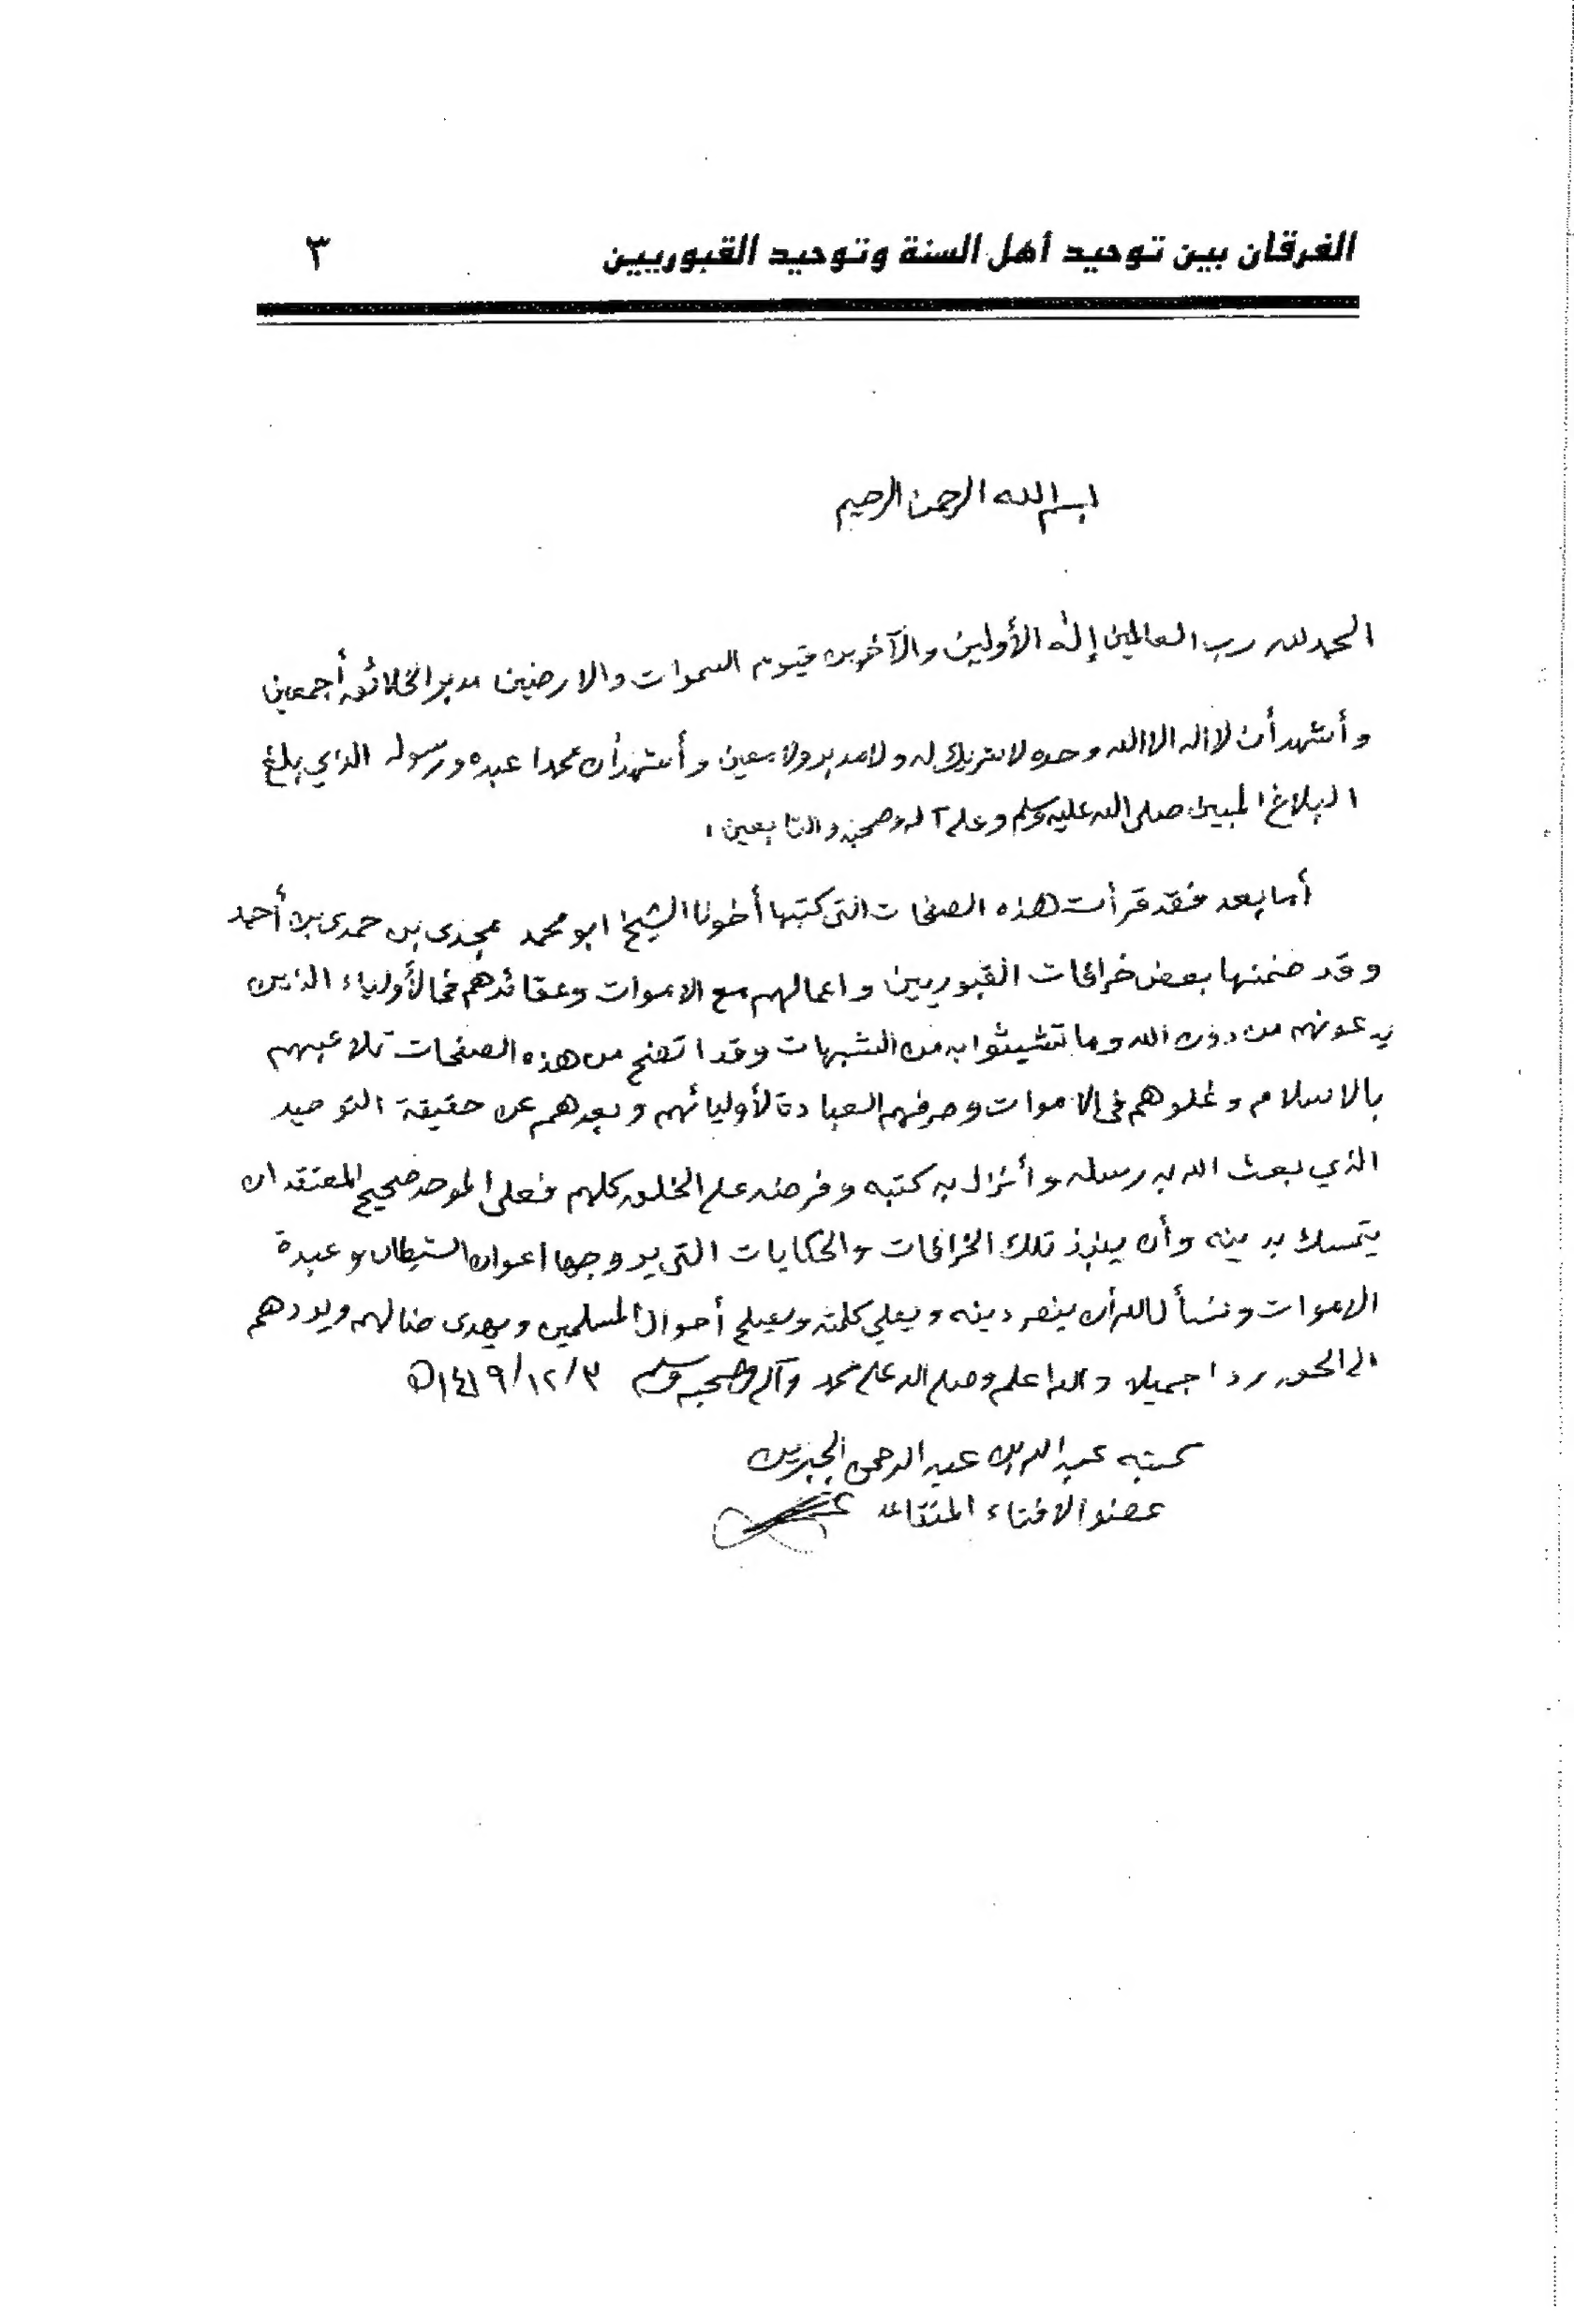 الفرقان بين توحيد أهل السنة وتوحيد القبوريين ٣
بسم الله الرحمن الرحيم
الحمد لله رب العالمين إله الأولين والآخرين قيوم السموات والارضين مدبر الخلائق أجمعين
وأشهد أن لا اله الا الله وحده لا شريك له ولا مدبر ولا معين وأشهد أن محمدا عبده ورسوله الذي بلغ
البلاغ المبين صلى الله عليه وسلم وعلى آله وصحبه والتابعين ،
أما بعد فقد قرأت هذه الصفحات التي كتبها أخونا الشيخ ابو محمد مجدي بن حمدي بن أحمد
وقد ضمنها بعض خرافات القبوريين واعمالهم مع الاموات وعقائدهم في الأولياء الذين
يدعونهم من دون الله وما تشبثوا به من الشبهات وقد اتضح من هذه الصفحات تلاعبهم
بالاسلام وغلوهم في الاموات وصرفهم العبادة لأوليائهم وبعدهم عن حقيقة التوحيد
الذي بعث الله به رسله وأنزل به كتبه وفرضه على الخلق كلهم فعلى الموحد صحيح المعتقد ان
يتمسك بدينه وأن ينبذ تلك الخرافات والحكايات التي يروجها اعوان الشيطان وعبدة
الاموات ونسأل الله أن ينصر دينه ويعلي كلمته ويصلح أحوال المسلمين ويهدي ضالهم ويردهم
الى الحق ردا جميلا والله اعلم وصلى الله على محمد وآله وصحبه وسلم ٣/١٢/١٤١٩هـ
كتبه عبد الله بن عبد الرحمن الجبرين
عضو الافتاء المتقاعد